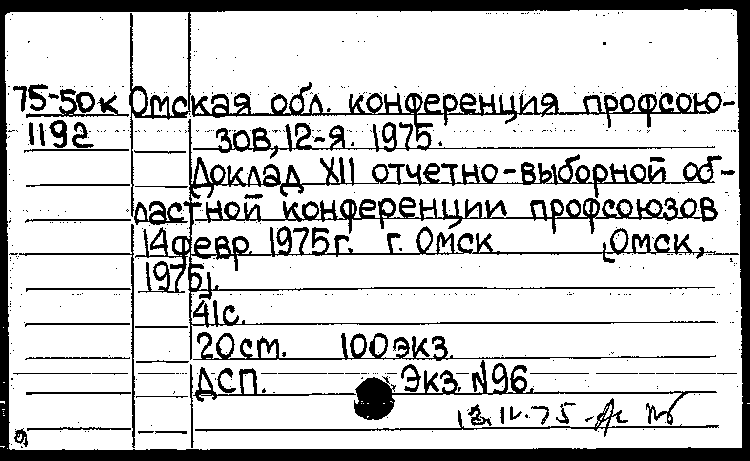 75-50к Омская обл. конференция профсою-
1192 зов, 12-я. 1975.
Доклад XII отчетно-выборной об-
ластной конференции профсоюзов
14 февр. 1975 г. г. Омск. [Омск,
1975].
41 с.
20 см. 100 экз.
ДСП. Экз. №96.
13.IV.75